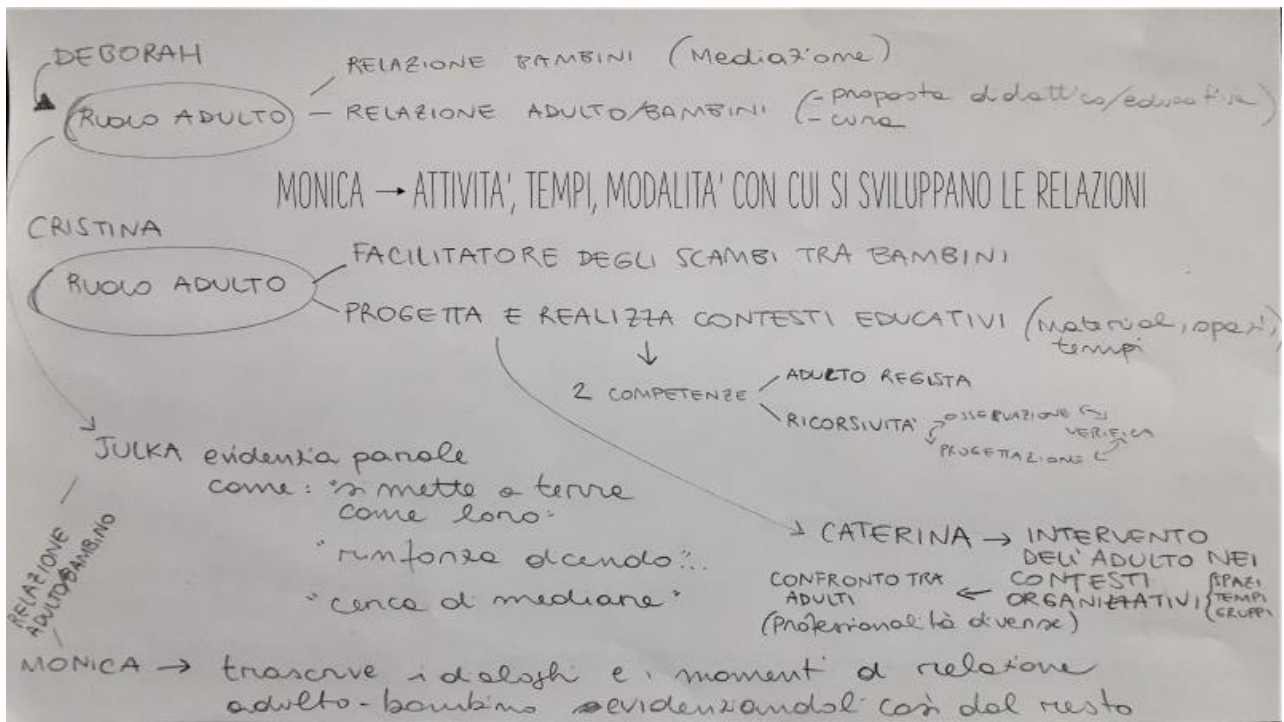 DEBORAH
RELAZIONE BAMBINI (Mediazione)
RUOLO ADULTO
RELAZIONE ADULTO/BAMBINI (- proposta didattica/educativa)
- cura
MONICA → ATTIVITA', TEMPI, MODALITA' CON CUI SI SVILUPPANO LE RELAZIONI
CRISTINA
RUOLO ADULTO
FACILITATORE DEGLI SCAMBI TRA BAMBINI
PROGETTA E REALIZZA CONTESTI EDUCATIVI (material, spazi,
tempi
2 COMPETENZE
ADULTO REGISTA
RICORSIVITA'
OSSERVAZIONE
VERIFICA
PROGETTAZIONE
JULKA evidenzia parole
come: "si mette a terra
come loro"
"rinforza dicendo"..
"cerca di mediare"
RELAZIONE
ADULTO/BAMBINO
→ CATERINA → INTERVENTO
DELL'ADULTO NEI
CONTESTI
ORGANIZZATIVI
SPAZI
TEMPI
GRUPPI
CONFRONTO TRA
ADULTI
(Professionalità diverse)
MONICA → trascrive i dialoghi e i momenti di relazione
adulto-bambino evidenziandoli così dal resto